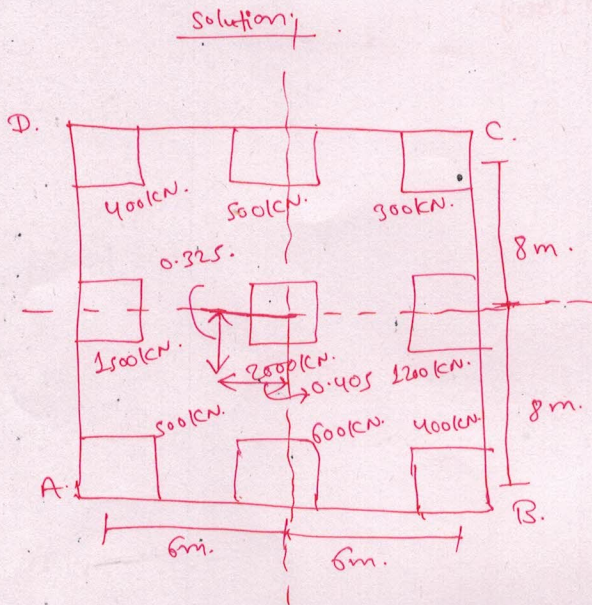 Solution;
D.
C.
400KN.
500KN.
300KN.
0.325.
8m.
1500KN.
2000KN.
1200KN.
0.405
500KN.
600KN.
400KN.
8m.
A.
B.
6m.
6m.